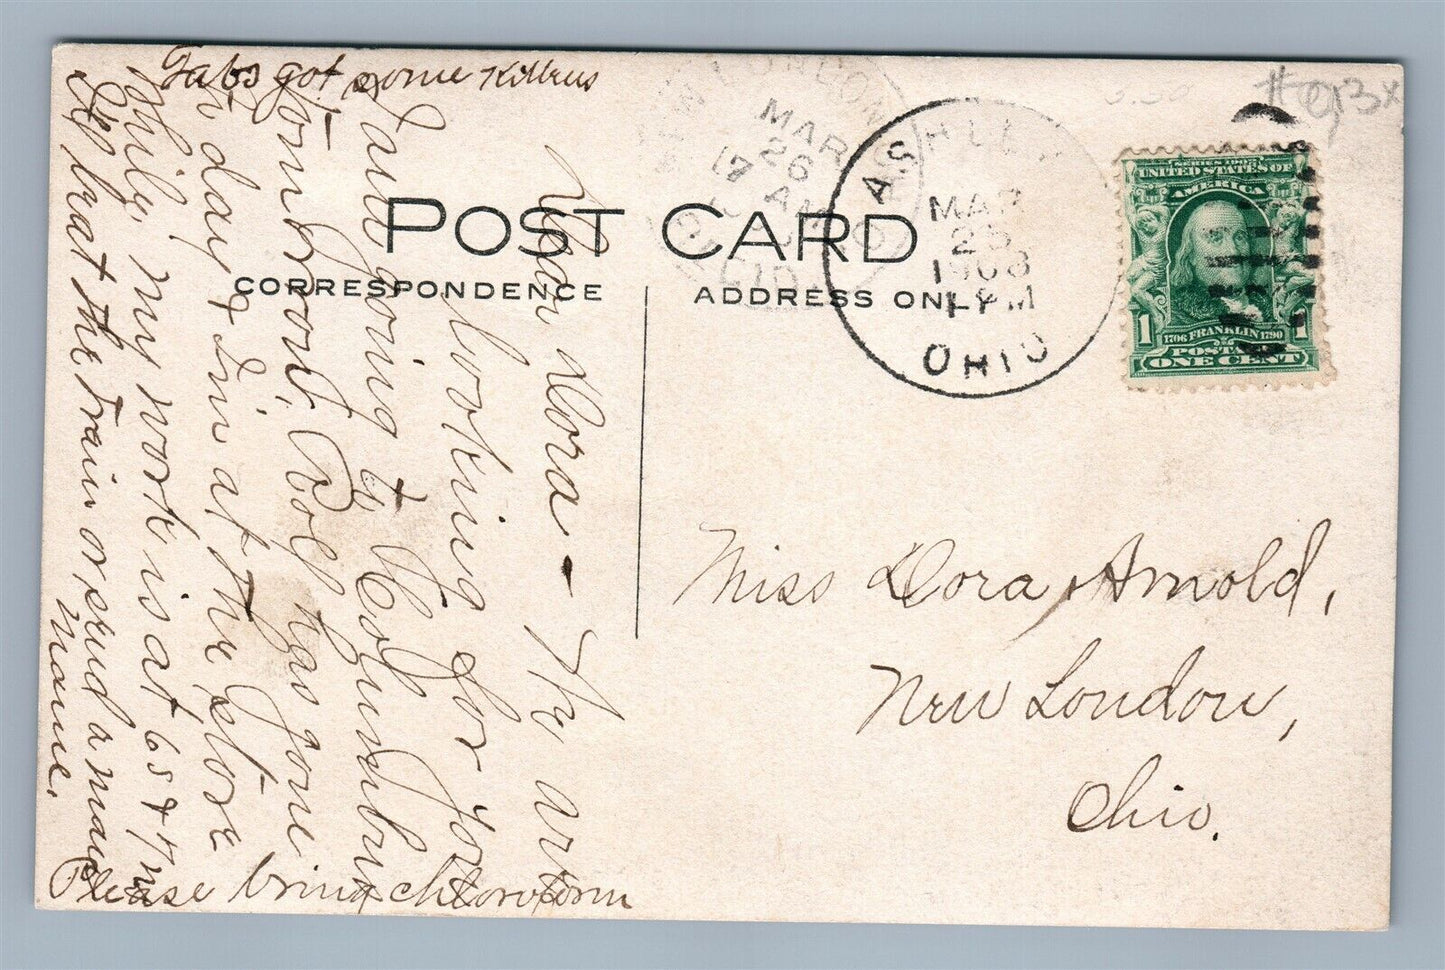 Tabs got some kittens
POST CARD
CORRESPONDENCE
ADDRESS ONLY
NEW LONDON
MAR
26
AM
OHIO
ASHLEY
MAR
25
1908
1 PM
OHIO
SERIES 1902
UNITED STATES OF
AMERICA
1
1
1706 FRANKLIN 1790
POSTAGE
ONE CENT
Dear Dora - We are
looking for you
I am going to Columbus
tomorrow, Rob has gone
day & I'm at the store
only, my work is at 6 5 & 7
I'll beat the train or send a man
Mame.
Please bring chloroform
Miss Dora Arnold,
New London,
Ohio.